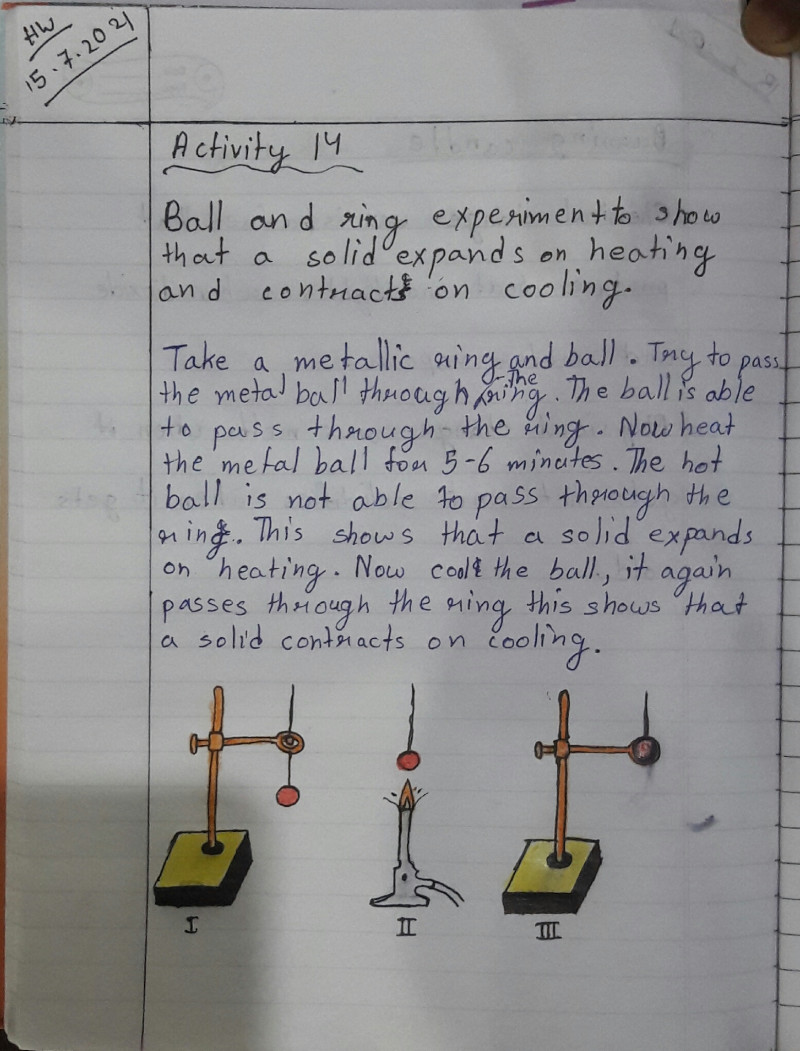 HW
15.7.2021
Activity 14
Ball and ring experiment to show
that a solid expands on heating
and contracts on cooling.
Take a metallic ring and ball. Try to pass
the metal ball through the ring. The ball is able
to pass through the ring. Now heat
the metal ball for 5-6 minutes. The hot
ball is not able to pass through the
ring. This shows that a solid expands
on heating. Now cool the ball, it again
passes through the ring this shows that
a solid contracts on cooling.
I
II
III